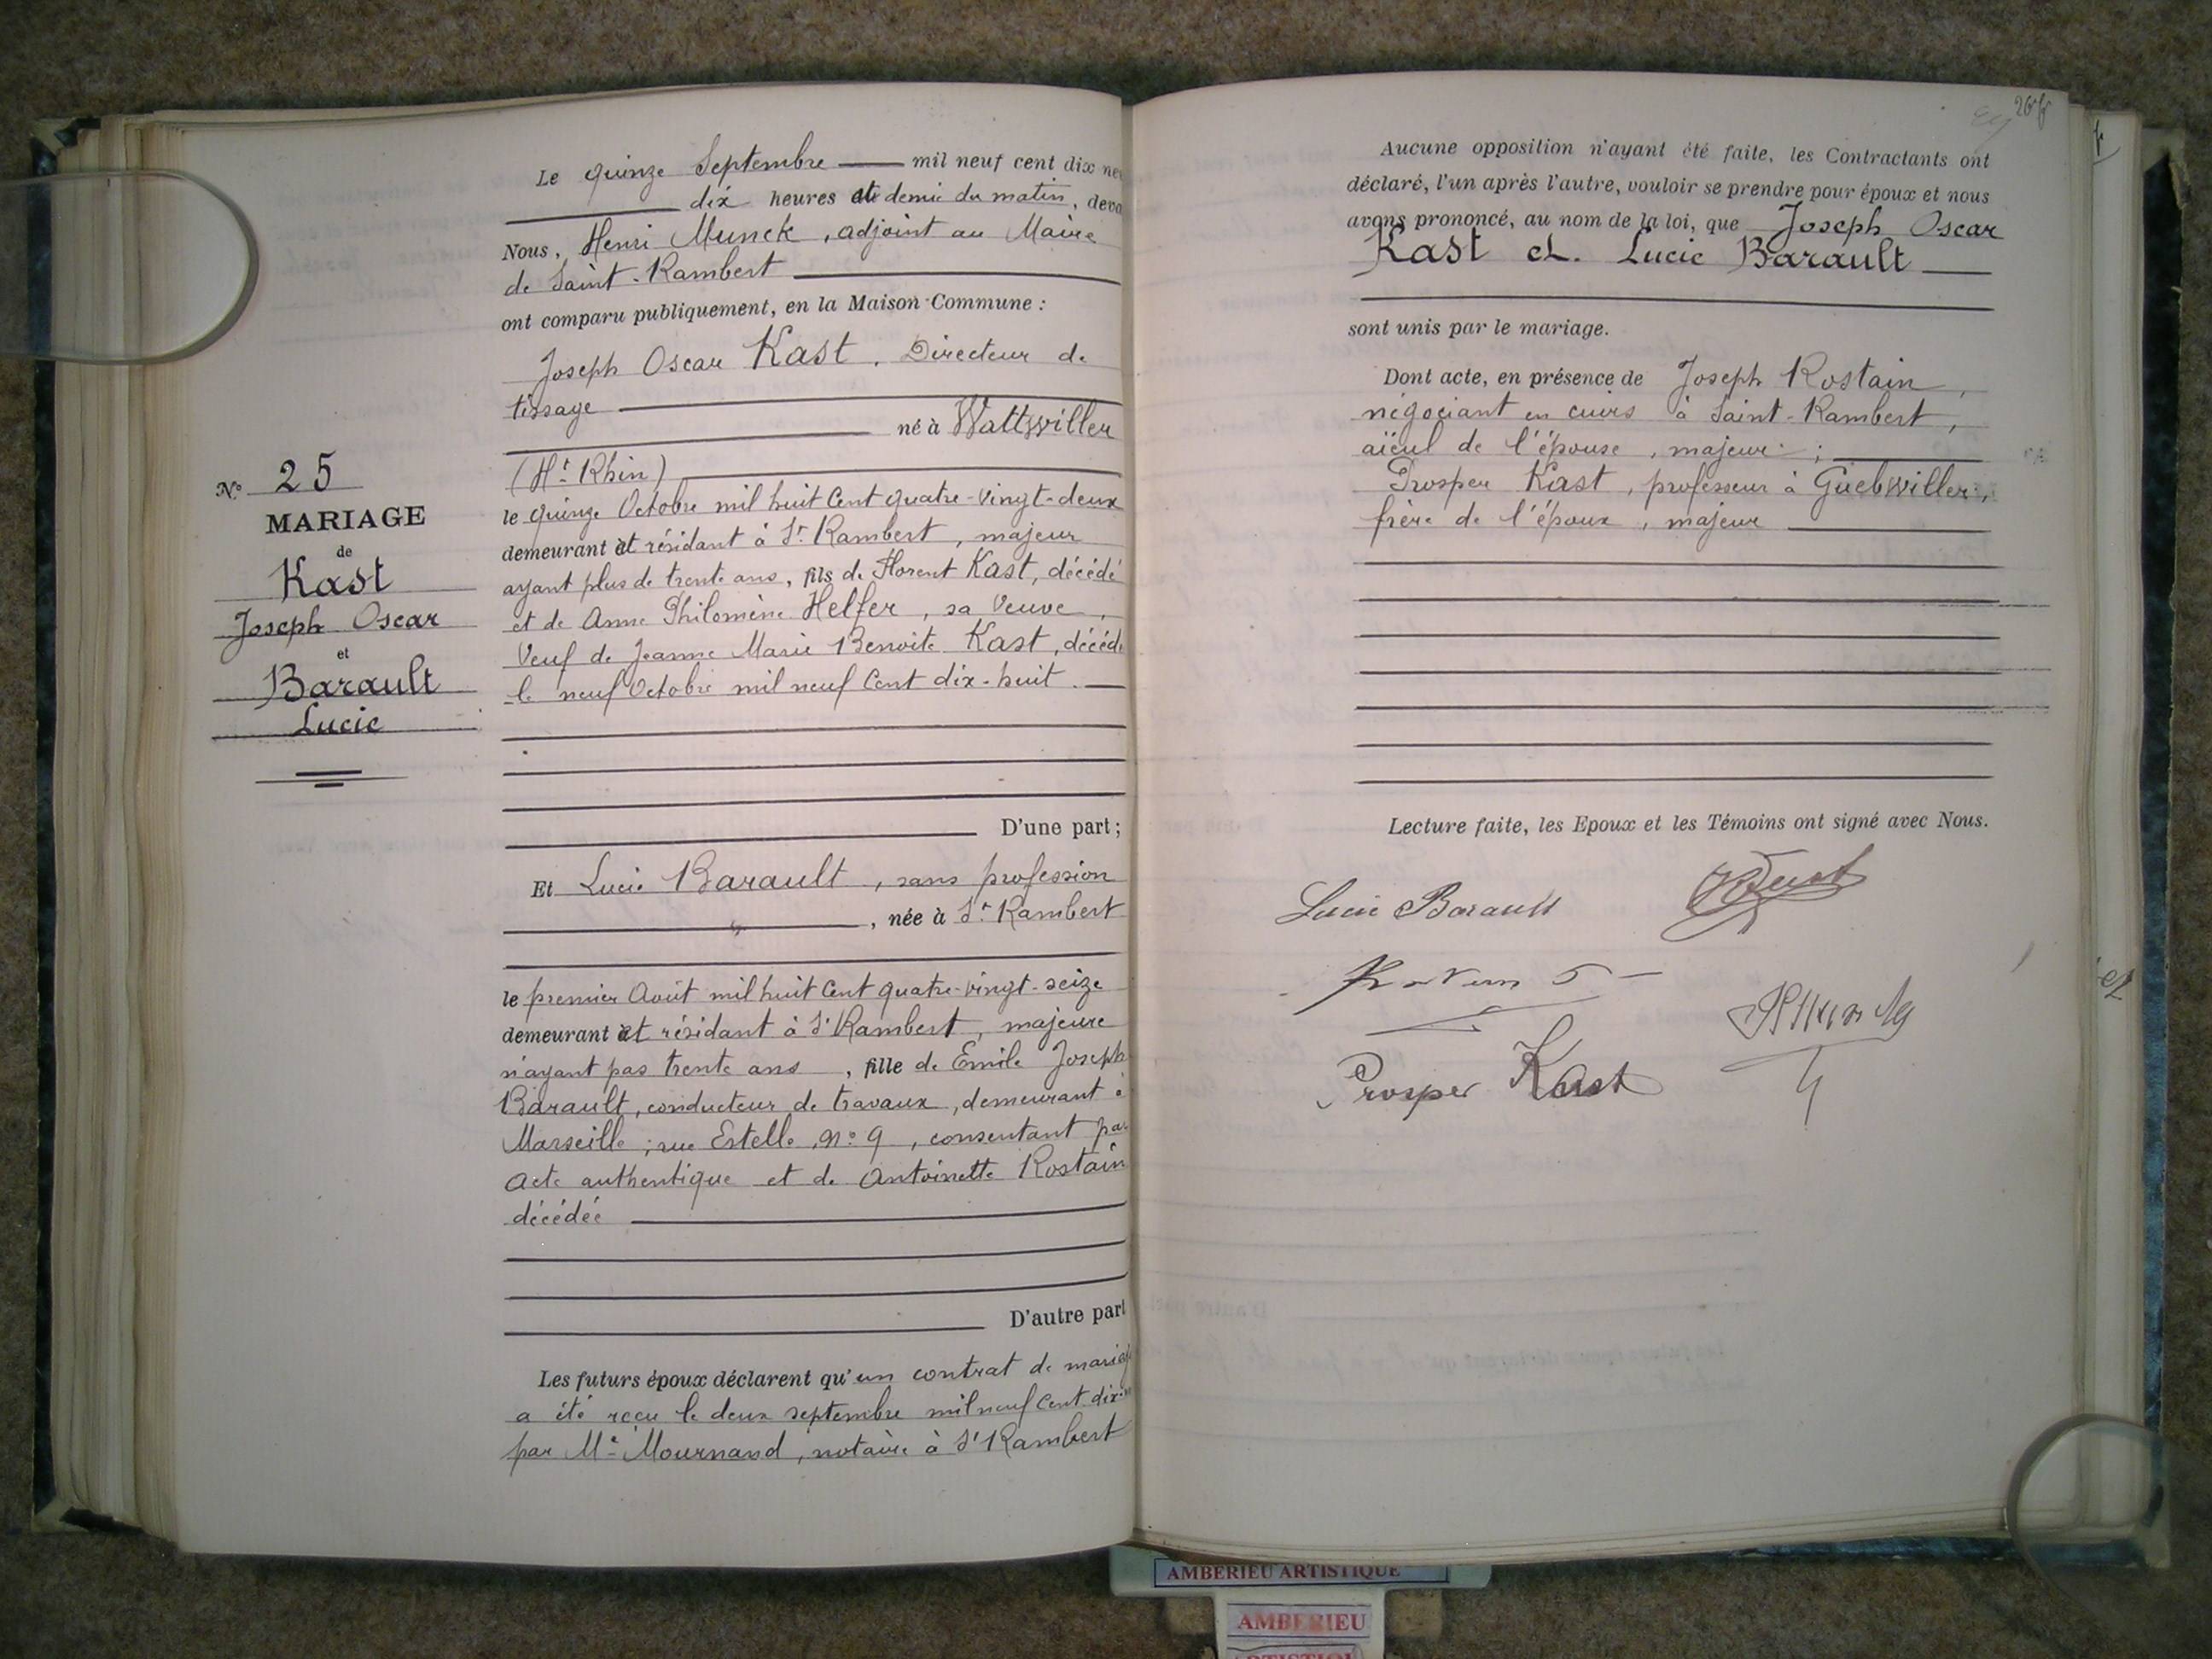 Le quinze Septembre mil neuf cent dix
dix heures et demie du matin,
Nous, Henri Munck, adjoint au Maire
de Saint-Rambert
ont comparu publiquement, en la Maison Commune :
Joseph Oscar Kast, Directeur de
tissage
né à Wattwiller
(Ht Rhin)
le quinze Octobre mil huit cent quatre-vingt-deux
demeurant et résidant à St Rambert, majeur
ayant plus de trente ans, fils de Florent Kast, décédé
et de Anne Philomène Helfer, sa Veuve,
Veuf de Jeanne Marie Benoite Kast,
le neuf Octobre mil neuf cent dix-huit.
N° 25
MARIAGE
de
Kast
Joseph Oscar
et
Barault
Lucie
D'une part ;
Et Lucie Barault, sans profession
, née à St Rambert
le premier Août mil huit cent quatre-vingt-seize
demeurant et résidant à St Rambert, majeure
n'ayant pas trente ans, fille de Emile Joseph
Barault, conducteur de travaux, demeurant à
Marseille, rue Estelle, n° 9, consentant
acte authentique et de Antoinette Rostain
décédée
D'autre part
Les futurs époux déclarent qu'un contrat de
a été reçu le deux septembre mil neuf cent dix
par Me Mournand, notaire à St Rambert
26
Aucune opposition n'ayant été faite, les Contractants ont
déclaré, l'un après l'autre, vouloir se prendre pour époux et nous
avons prononcé, au nom de la loi, que Joseph Oscar
Kast et Lucie Barault
sont unis par le mariage.
Dont acte, en présence de Joseph Rostain,
négociant en cuirs à Saint-Rambert,
aïeul de l'épouse, majeur ;
Prosper Kast, professeur à Guebwiller,
frère de l'époux, majeur
Lecture faite, les Epoux et les Témoins ont signé avec Nous.
Lucie Barault
Prosper Kast
AMBERIEU ARTISTIQUE
AMBERIEU